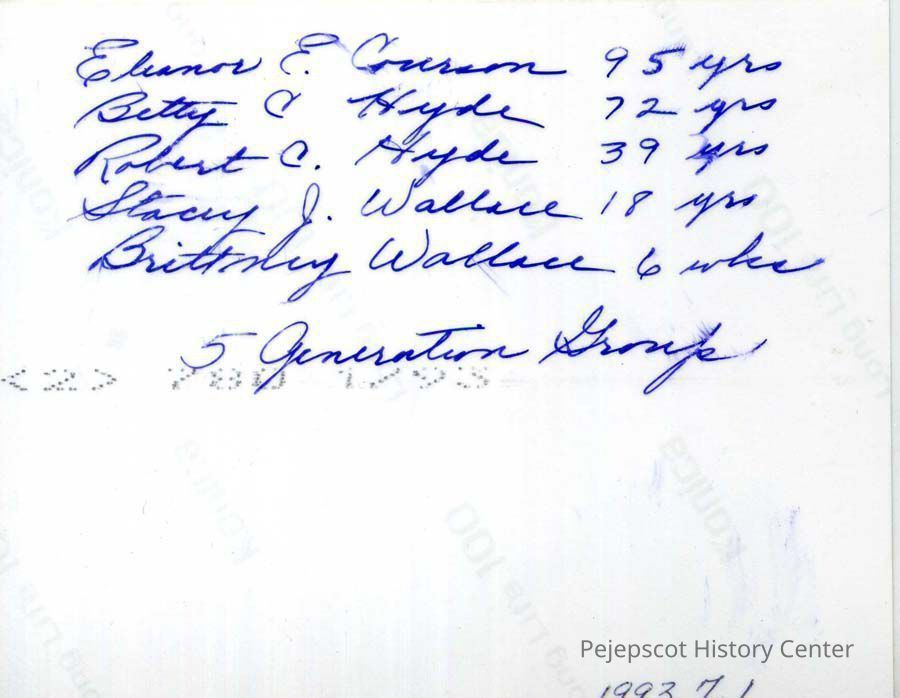 Eleanor E. Courson 95 yrs
Betty C Hyde 72 yrs
Robert C. Hyde 39 yrs
Stacey J. Wallace 18 yrs
Brittney Wallace 6 wks
5 Generation Group
Konica
Pejepscot History Center
1993.7.1